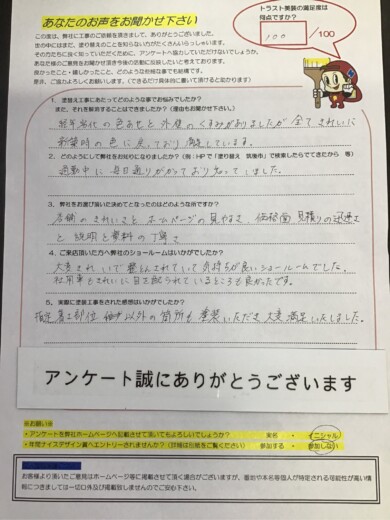 あなたのお声をお聞かせ下さい
トラスト美装の満足度は
何点ですか？
100 /100
この度は、弊社に工事のご依頼を頂きまして、ありがとうございました。
世の中にはまだ、塗り替えのことを知らない方がたくさんいらっしゃいます。
その方たちに良く知っていただくために、アンケートへ協力していただけないでしょうか。
あなた様のご意見をお聞かせ頂き今後の活動に役立したいと考えております。
良かったこと・嬉しかったこと、どのような些細な事でも結構です。
是非、ご協力よろしくお願いします。（できるだけ具体的に書いて頂けると助かります）
1．塗替え工事にあたってどのような事でお悩みでしたか？
また、それを解消することはできましたか？（理由もお聞かせ下さい。）
経年劣化の色あせと外壁のくすみがありましたが全てきれいに
新築時の色に戻っており満足しています。
2．どのようにして弊社をお知りになりましたか？（例：HPで「塗り替え 筑後市」で検索したらでてきたから 等）
通勤中に毎日通りがかっており知っていました。
3．弊社をお選び頂いた決めてとなったのはどのような所ですか？
店舗のきれいさとホームページの見やすさ、価格面 見積りの迅速さ
と説明と資料の丁寧さ
4．ご来店頂いた方へ弊社のショールームはいかがでしたか？
大変きれいで整とんされていて気持ちが良いショールームでした。
社用車もきれいに目を配られているところも良かったです。
5．実際に塗装工事をされた感想はいかがでしたか？
以外の箇所も塗装いただき大変満足いたしました。
アンケート誠にありがとうございます
※お願い※
・アンケートを弊社ホームページへ記載させて頂いてもよろしいでしょうか？ 実名 ・ イニシャル
・年間ナイスデザイン賞へエントリーされませんか？（詳細は別紙をご覧ください） 参加する ・ 参加しない
お客様より頂いたご意見はホームページ等に掲載させて頂く場合がございますが、番地や本名等個人が特定される可能性が高い情
報につきましては一切公外及び掲載致しませんのでご安心下さい。